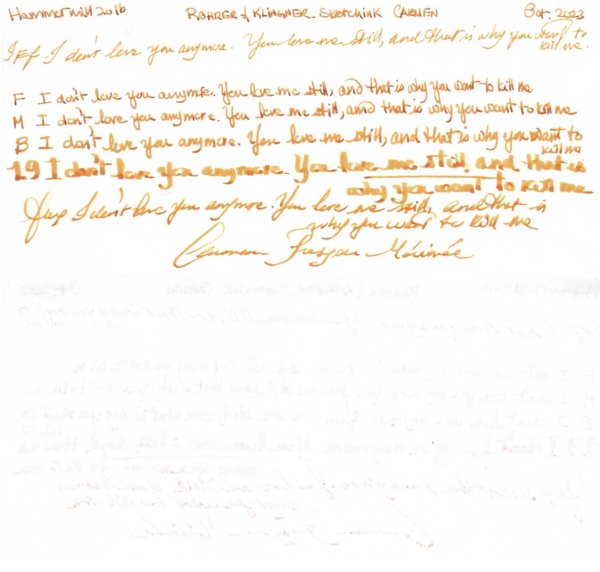 Hammermill 20lb Rohrer & Klingner Sketchink Carmen Oct. 2023
I EF I don't love you anymore. You love me still, and that is why you want to
kill me.
F I don't love you anymore. You love me still, and that is why you want to kill me
M I don't love you anymore. You love me still, and that is why you want to kill me
B I don't love you anymore. You love me still, and that is why you want to
kill me
1.9 I don't love you anymore. You love me still, and that is
why you want to kill me
I don't love you anymore. You love me still, and that is
why you want to kill me
Carmen Prosper Mérimée